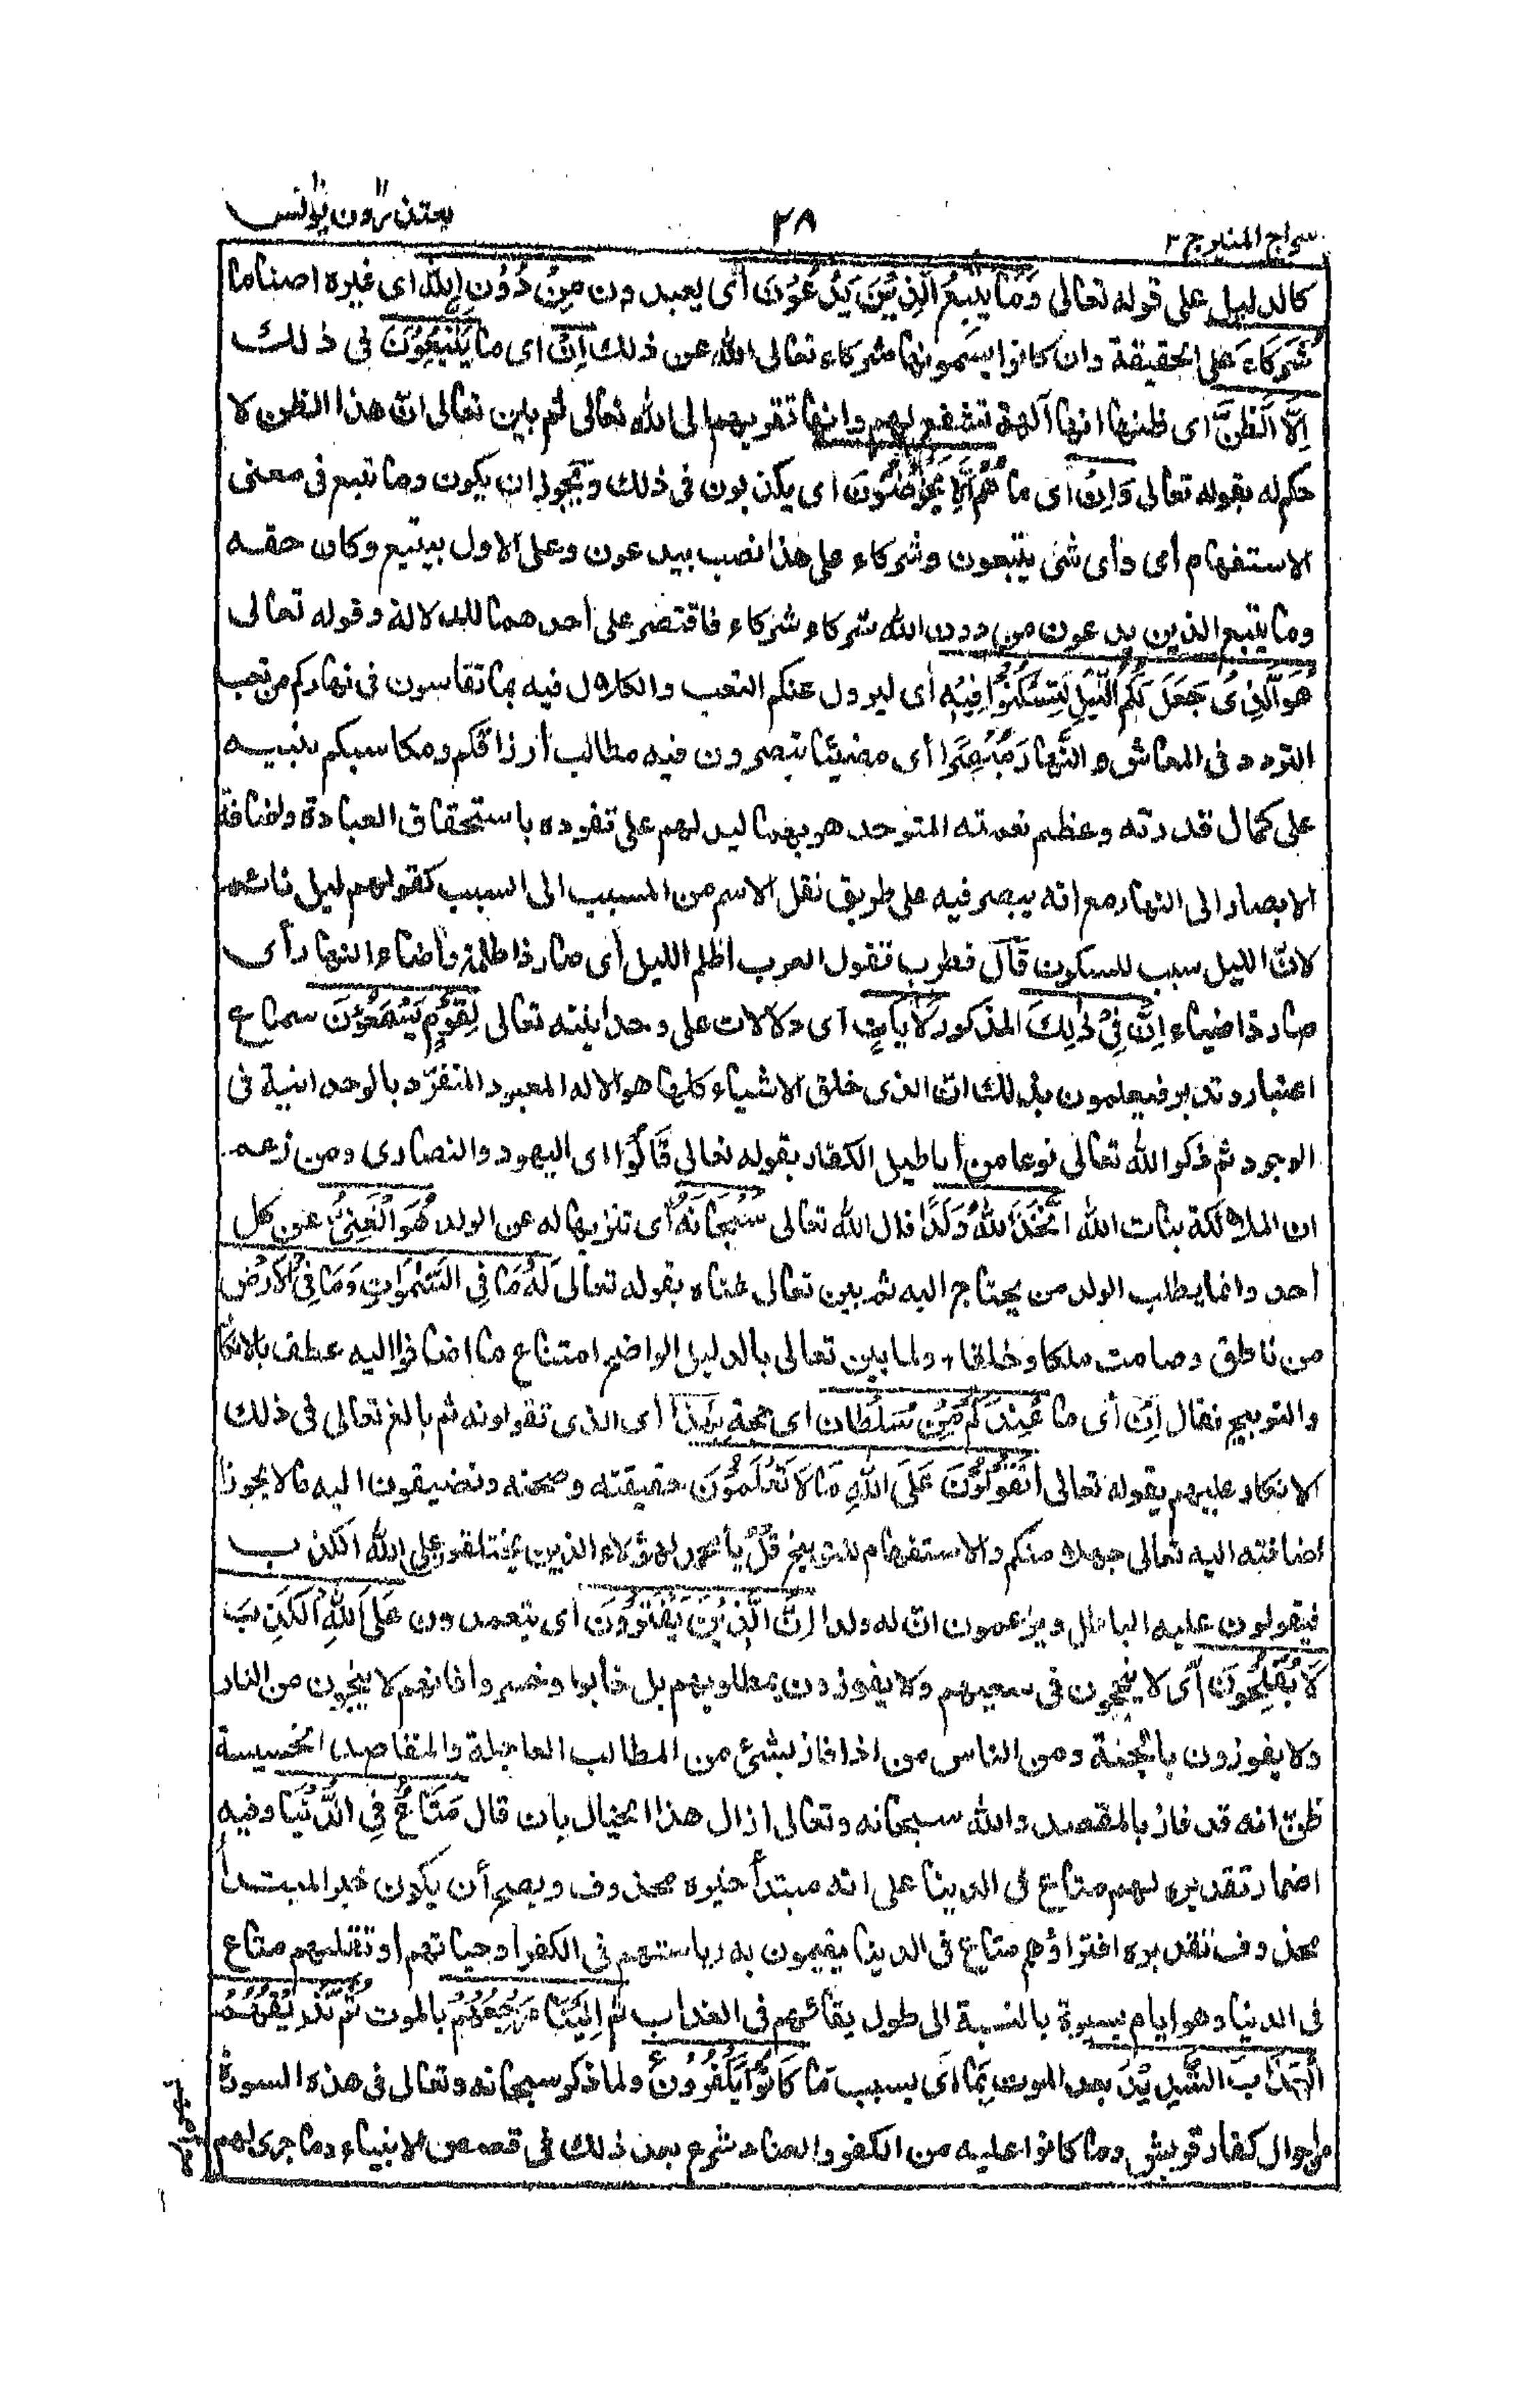 سراج المنير ج ٢
٢٨
يعتذرون يونس
كالدليل على قوله تعالى وَمَا يَتَّبِعُ الَّذِيْنَ يَدْعُوْنَ أى يعبدون مِنْ دُوْنِ اللهِ اى غيره اصناما
شُرَكَاءَ على الحقيقة وان كانوا يسمونها شركاء تعالى الله عن ذلك اِنْ اى ما يَتَّبِعُوْنَ فى ذلك
اِلَّا الظَّنَّ اى ظنها انها آلهة تشفع لهم وانها تقربهم الى الله تعالى ثم بين تعالى انّ هذا الظن لا
حكم له بقوله تعالى وَاِنْ اى ما هُمْ اِلَّا يَخْرُصُوْنَ اى يكذبون فى ذلك ويجوز ان يكون وما يتبع فى معنى
الاستفهام أى وأى شئ يتبعون وشركاء على هذا نصب بيدعون وعلى الاول بيتبع وكان حقه
وما يتبع الذين يدعون من دون الله شركاء شركاء فاقتصر على أحدهما للدلالة وقوله تعالى
هُوَ الَّذِىْ جَعَلَ لَكُمُ الَّيْلَ لِتَسْكُنُوْا فِيْهِ أى ليزول عنكم التعب والكلال فيه بما تقاسون فى نهاركم من تعب
التردد فى المعاش وَالنَّهَارَ مُبْصِرًا أى مضيئا تبصرون فيه مطالب أرزاقكم ومكاسبكم تنبيه
على كمال قدرته وعظم نعمته المتوحد هو بهما ليدلهم على تفرده باستحقاق العبادة واضافة
الابصار الى النهار مع انه يبصر فيه على طريق نقل الاسم من المسبب الى السبب كقولهم ليل نائم
لانّ الليل سبب للسكون قال قطرب تقول العرب أظلم الليل أى صار ذا ظلمة وأضاء النهار أى
صار ذا ضياء اِنَّ فِىْ ذٰلِكَ المذكور لَاٰيَاتٍ اى دلالات على وحدانيته تعالى لِقَوْمٍ يَسْمَعُوْنَ سماع
اعتبار وتدبر فيعلمون بذلك انّ الذى خلق الاشياء كلها هو الاله المعبود المتفرّد بالوحدانية فى
الوجود ثم ذكر الله تعالى نوعا من أباطيل الكفار بقوله تعالى قَالُوْا اى اليهود والنصارى ومن زعم
ان الملائكة بنات الله اتَّخَذَ اللهُ وَلَدًا قال الله تعالى سُبْحَانَهُ أى تنزيها له عن الولد هُوَ الْغَنِىُّ عن كل
أحد وانما يطلب الولد من يحتاج اليه ثم بين تعالى غناه بقوله تعالى لَهُ مَا فِى السَّمٰوَاتِ وَمَا فِى الْاَرْضِ
من ناطق وصامت ملكا وخلقا، ولما بين تعالى بالدليل الواضح امتناع ما اضافوا اليه عطف بالانكا
والتوبيخ فقال اِنْ أى ما عِنْدَكُمْ مِّنْ سُلْطَان اى حجة بِهٰذَا أى الذى تقولونه ثم بالغ تعالى فى ذلك
الانكار عليهم بقوله تعالى اَتَقُوْلُوْنَ عَلَى اللهِ مَا لَا تَعْلَمُوْنَ حقيقته وصحته وتضيفون اليه مالا يجوز
اضافته اليه تعالى جهلا منكم والاستفهام للتوبيخ قُلْ يا محمد لهؤلاء الذين يختلقون على الله الكذب
فيقولون عليه الباطل ويزعمون انّ له ولدا اِنَّ الَّذِيْنَ يَفْتَرُوْنَ أى يتعمدون عَلَى اللهِ الْكَذِبَ
لَا يُفْلِحُوْنَ أى لا ينجحون فى سعيهم ولا يفوزون بمطلوبهم بل خابوا وخسروا فانهم لا ينجون من النار
ولا يفوزون بالجنة ومن الناس من اذا فاز بشئ من المطالب العاجلة والمقاصد الخسيسة
ظنّ انه قد فاز بالمقصد والله سبحانه وتعالى ازال هذا الخيال بان قال مَتَاعٌ فِى الدُّنْيَا وفيه
اضمار تقديره لهم متاع فى الدنيا على انه مبتدأ خبره محذوف ويصح أن يكون خبر المبتدأ
محذوف تقديره افتراؤهم متاع فى الدنيا يقيمون به رياستهم فى الكفر او حياتهم او تقلبهم متاع
فى الدنيا وهو ايام يسيرة بالنسبة الى طول بقائهم فى العذاب ثُمَّ اِلَيْنَا مَرْجِعُهُمْ بالموت ثُمَّ نُذِيْقُهُمُ
الْعَذَابَ الشَّدِيْدَ بعد الموت بِمَا اى بسبب ما كَانُوْا يَكْفُرُوْنَ ولما ذكر سبحانه وتعالى فى هذه السورة
من احوال كفار قريش وما كانوا عليه من الكفر والعناد شرع بعد ذلك فى قصص الانبياء وما جرى لهم